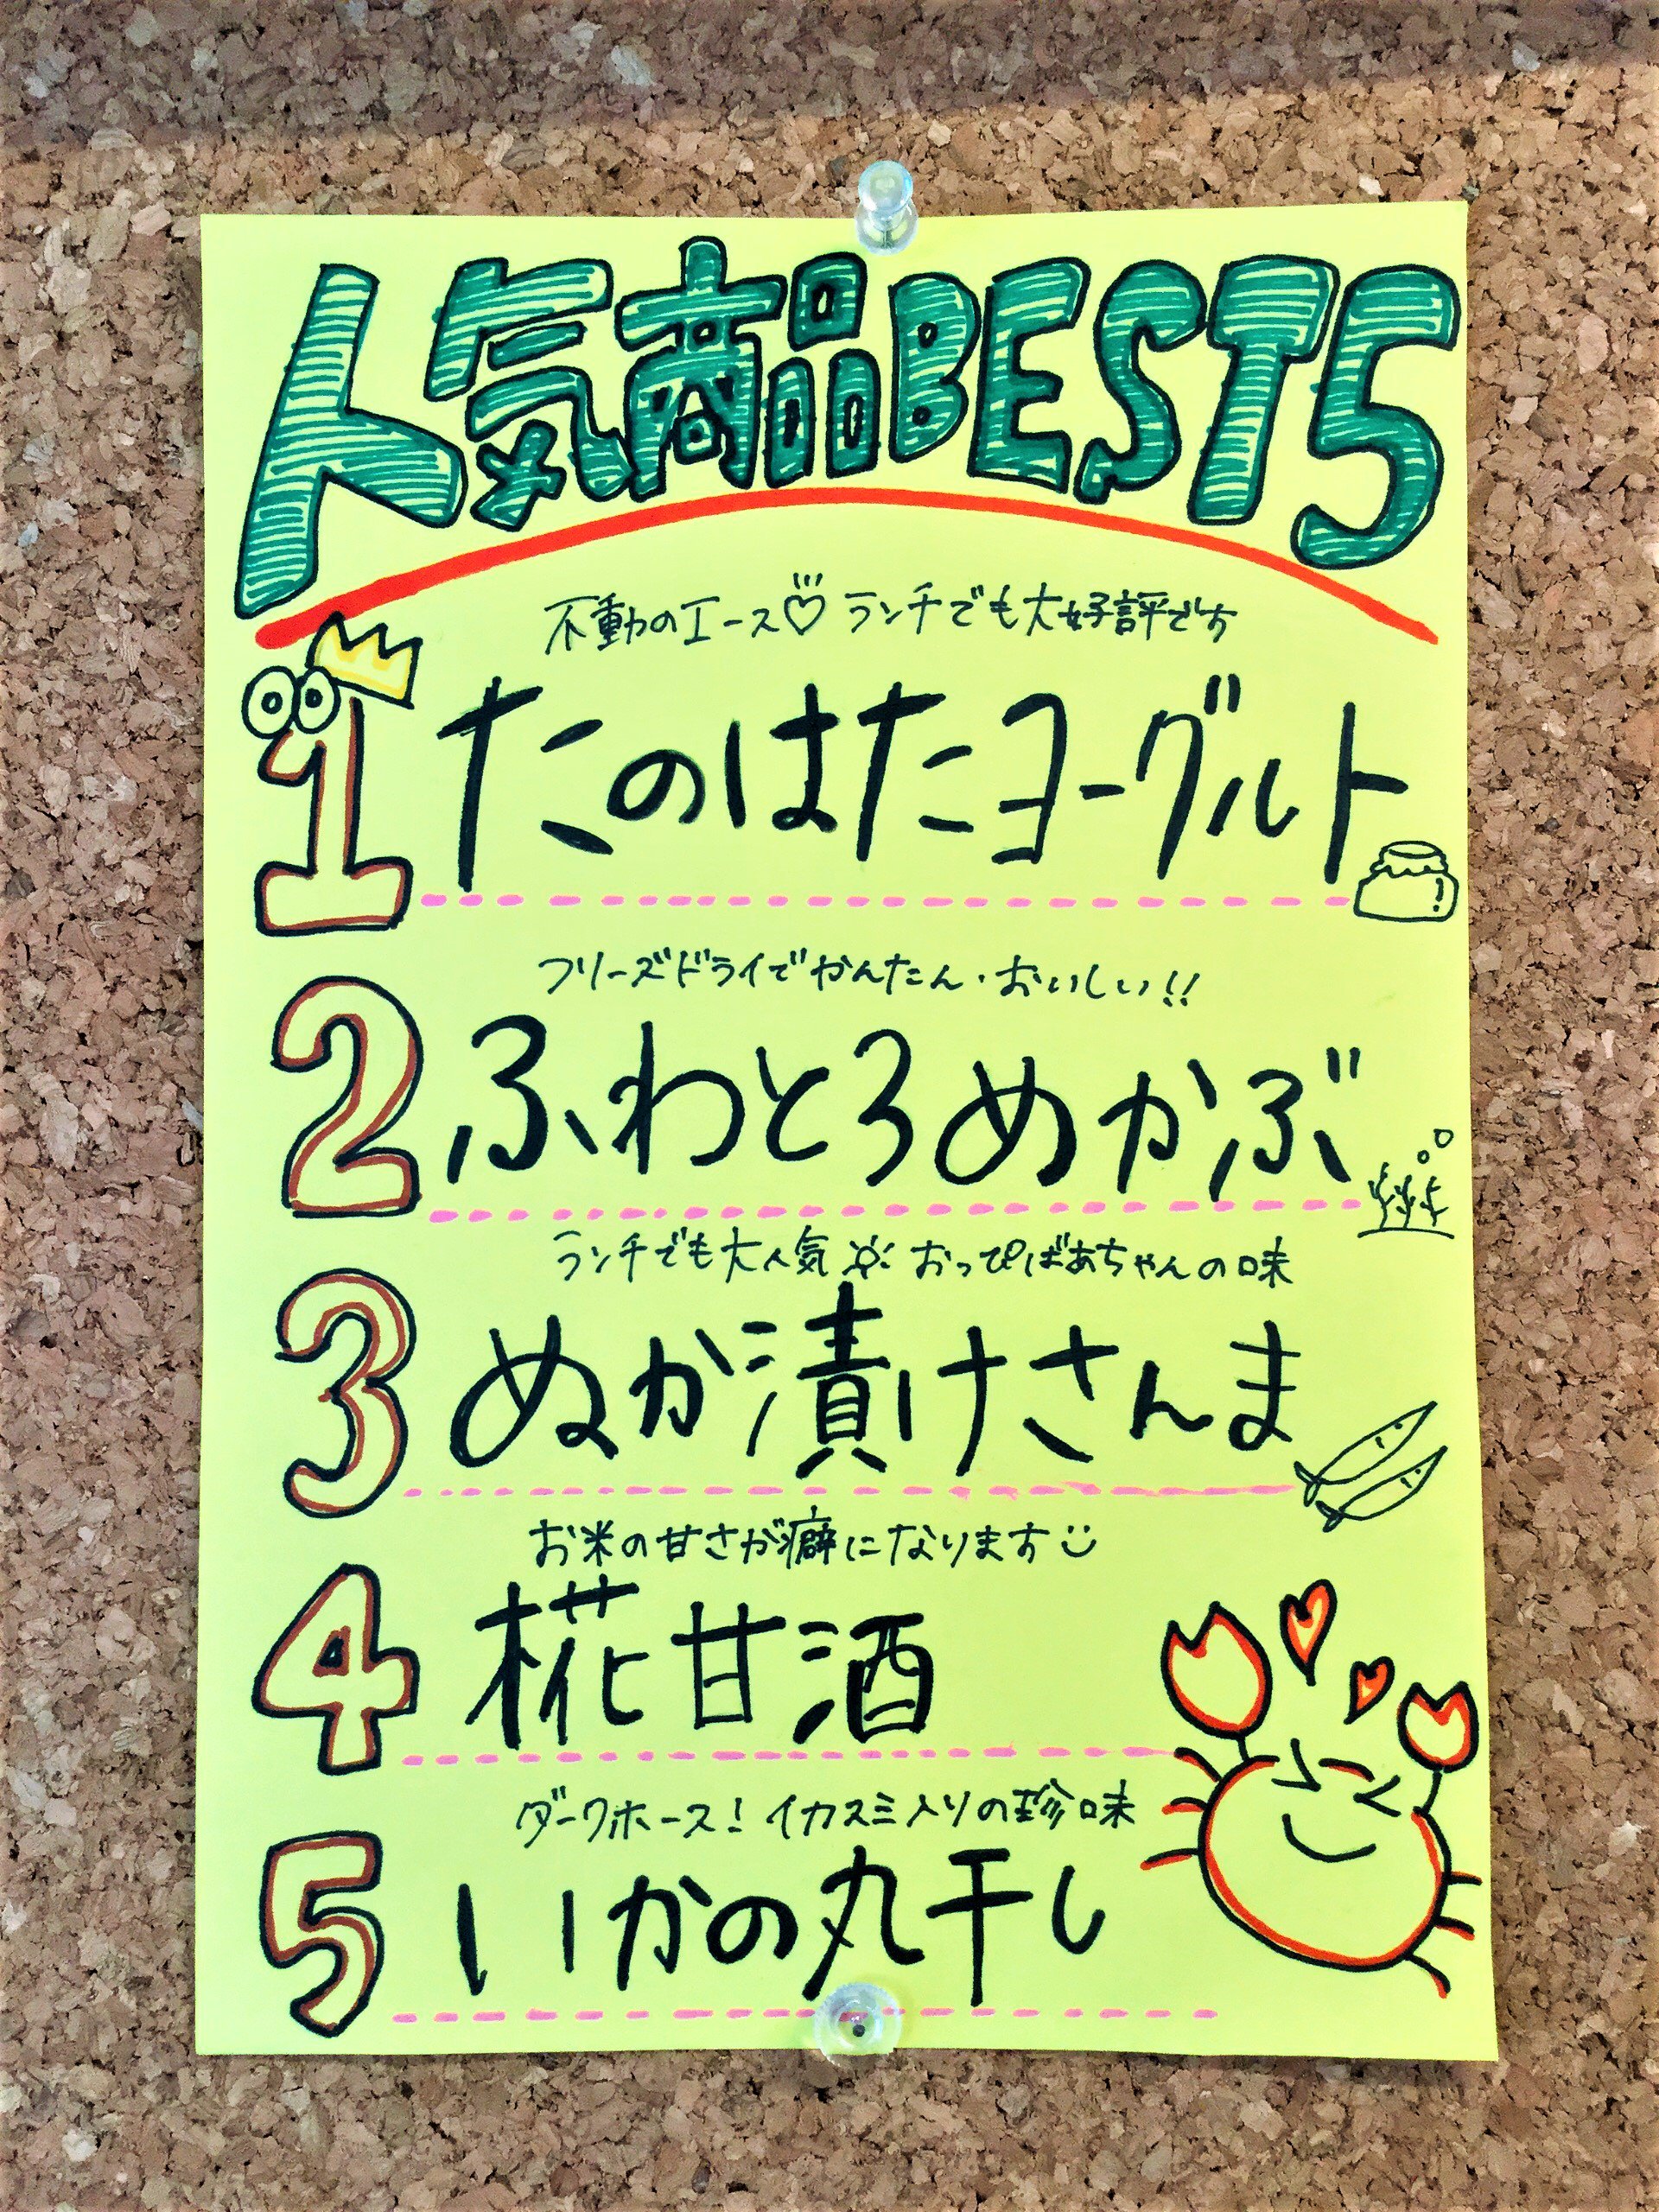 人気商品BEST5
不動のエース♡ ランチでも大好評です
1 たのはたヨーグルト
フリーズドライでかんたん・おいしい!!
2 ふわとろめかぶ
ランチでも大人気 おっぴばあちゃんの味
3 ぬか漬けさんま
お米の甘さが癖になります
4 糀甘酒
ダークホース! イカスミ入りの珍味
5 いかの丸干し